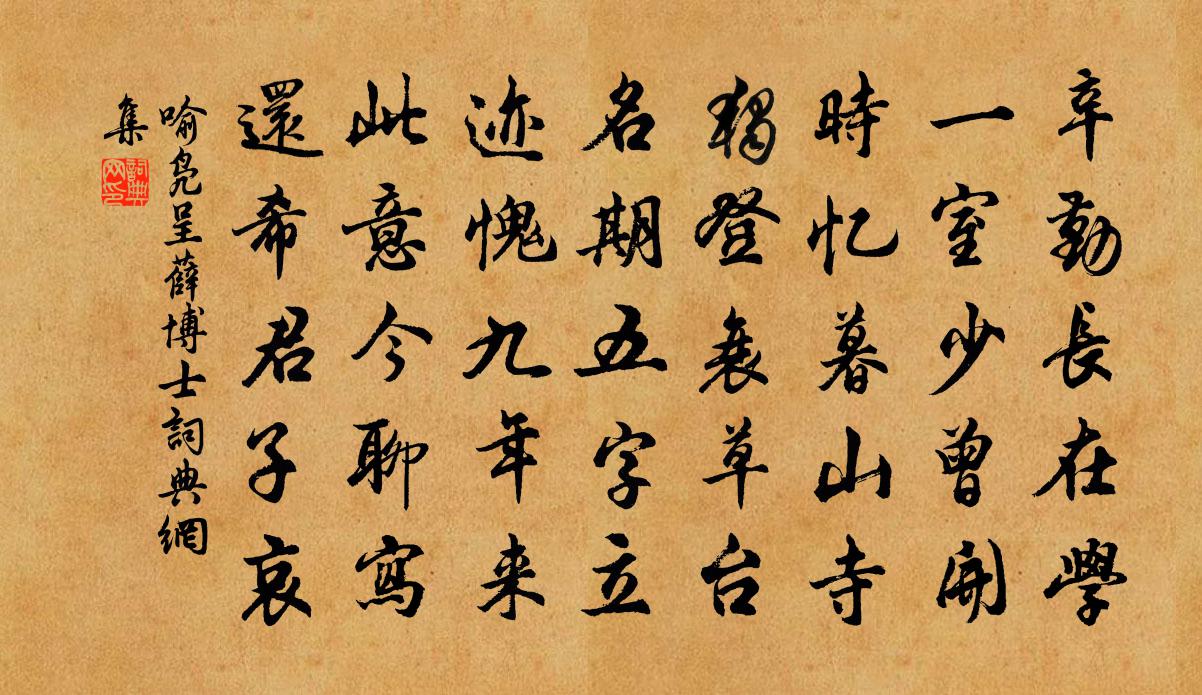 辛勤長在學
一室少曾開
時忆暮山寺
獨登衰草台
名期五字立
迹愧九年来
此意今聊寫
還希君子哀
喻凫呈薛博士詞典網
集
詞典网印